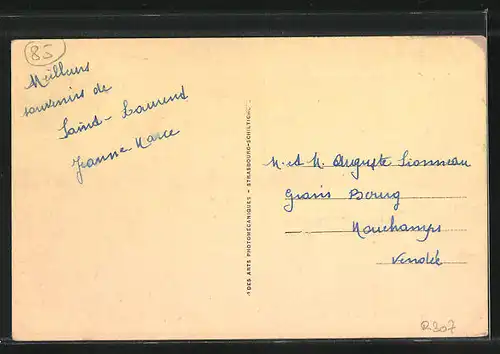 85
Meilleurs
souvenirs de
Saint-Laurent
Jeanne Marie
DES ARTS PHOTOMÉCANIQUES - STRASBOURG-SCHILTIGH
M. et M. Auguste
Bourg
Mouchamps
Vendée
R307